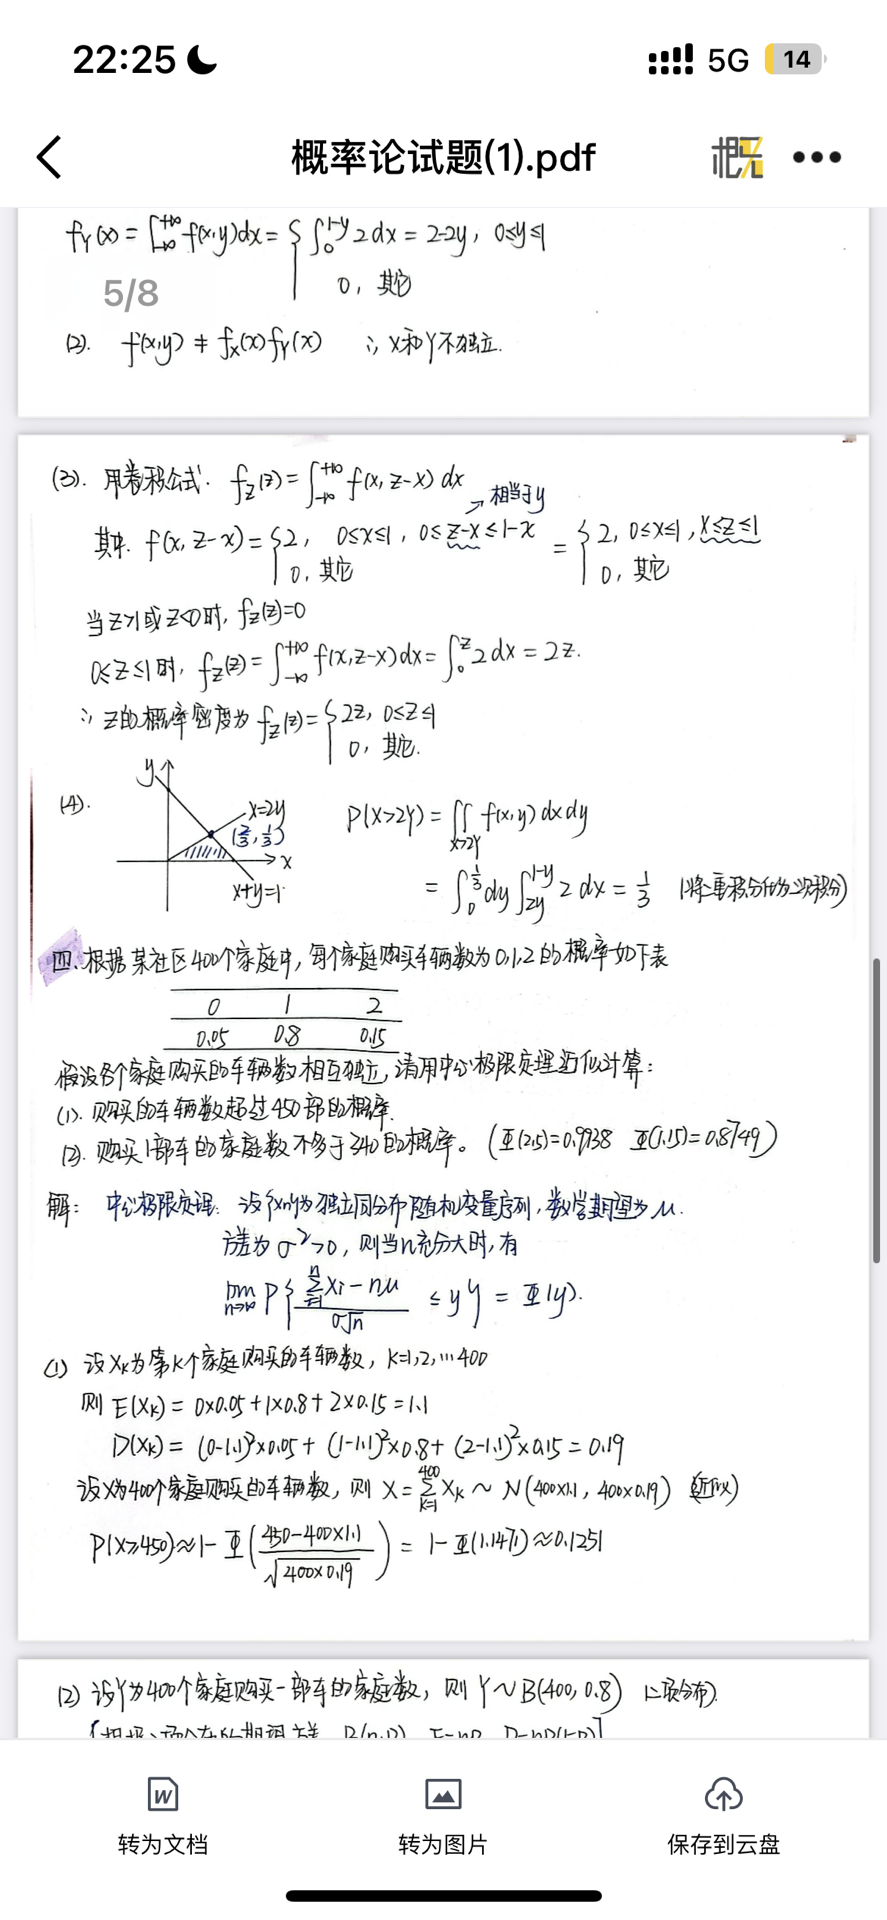 22:25
5G 14
概率论试题(1).pdf
f_Y(x) = ∫_{-∞}^{+∞} f(x,y)dx = { ∫_0^{1-y} 2dx = 2-2y, 0≤y≤1
0, 其它
5/8
(2). f(x,y) ≠ f_X(x)f_Y(x) ∴ X和Y不独立.
(3). 用卷积公式: f_Z(z) = ∫_{-∞}^{+∞} f(x, z-x) dx
→ 相当于y
其中. f(x, z-x) = { 2, 0≤x≤1, 0≤z-x≤1-x = { 2, 0≤x≤1, x≤z≤1
0, 其它 0, 其它
当z>1或z<0时, f_Z(z)=0
0≤z≤1时, f_Z(z) = ∫_{-∞}^{+∞} f(x,z-x)dx = ∫_0^z 2dx = 2z.
∴ Z的概率密度为 f_Z(z) = { 2z, 0≤z≤1
0, 其它.
(4).
y
x=2y
(2/3, 1/3)
x
x+y=1
P(X>2Y) = ∬_{x>2Y} f(x,y) dxdy
= ∫_0^{1/3} dy ∫_{2y}^{1-y} 2 dx = 1/3 (将二重积分化为二次积分)
四. 根据某社区400个家庭中, 每个家庭购买车辆数为0,1,2的概率如下表
0 1 2
0.05 0.8 0.15
假设各个家庭购买的车辆数相互独立, 请用中心极限定理近似计算:
(1). 购买的车辆数超过450部的概率.
(2). 购买1部车的家庭数不多于340的概率。(Φ(2.5)=0.9938 Φ(1.15)=0.8749)
解: 中心极限定理: 设{xn}为独立同分布随机变量序列, 数学期望为μ.
方差为σ²>0, 则当n充分大时, 有
lim_{n→∞} P{ (∑_{i=1}^{n} Xi - nμ) / (σ√n) ≤ y } = Φ(y).
(1) 设X_k为第k个家庭购买的车辆数, k=1,2,…400
则 E(X_k) = 0×0.05+1×0.8+2×0.15=1.1
D(X_k) = (0-1.1)²×0.05 + (1-1.1)²×0.8+ (2-1.1)²×0.15 = 0.19
设X为400个家庭购买的车辆数, 则 X = ∑_{k=1}^{400} X_k ~ N(400×1.1, 400×0.19) (近似)
P(X≥450) ≈ 1-Φ( (450-400×1.1) / √(400×0.19) ) = 1-Φ(1.147) ≈ 0.1251
(2) 设Y为400个家庭购买一部车的家庭数, 则 Y~B(400, 0.8) (二项分布).
转为文档
转为图片
保存到云盘